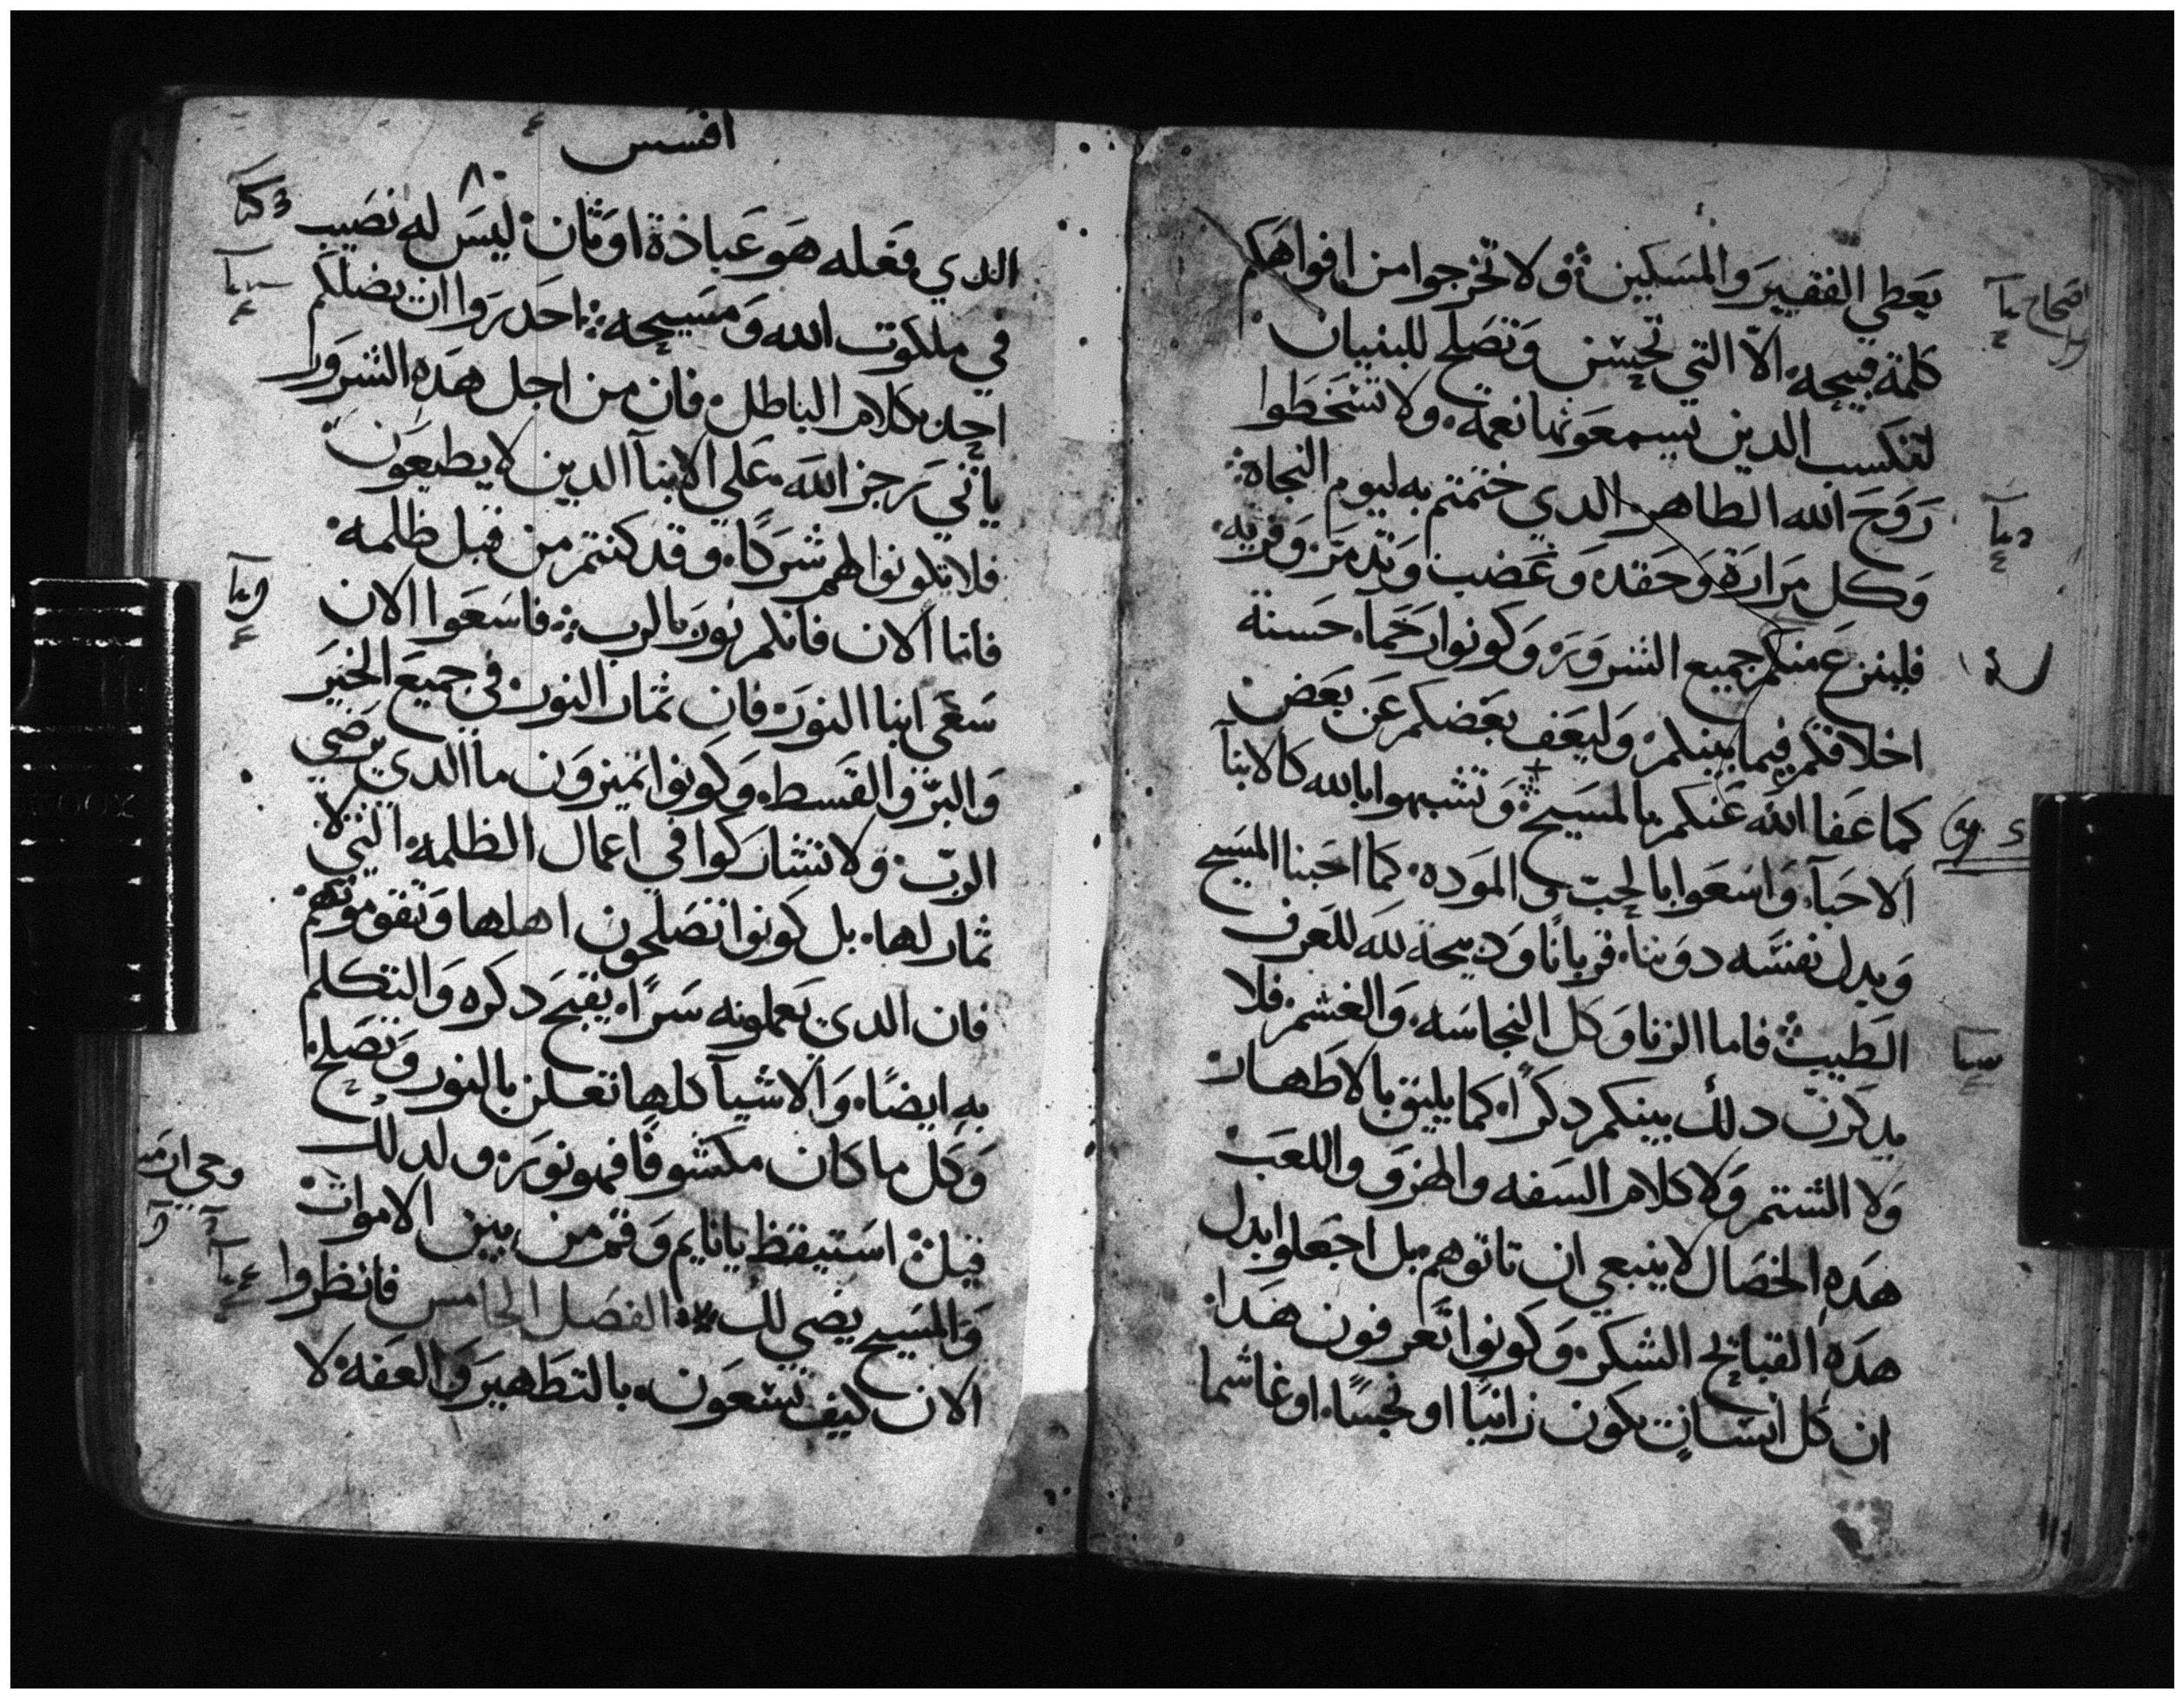 يعطي الفقير والمسكين ولا تخرجوا من افواهكم
كلمة قبيحه الا التي تحسن وتصلح للبنيان
لتكسب الدين يسمعونها نعمه ولا تسخطوا
روح الله الطاهر الدي ختمتم به ليوم النجاه
وكل مرارة وحقد وغضب وتدمر وفريه
فلينزع منكم جميع الشرور وكونوا رحما حسنة
اخلاقكم فيما بينكم وليعف بعضكم عن بعض
كما عفا الله عنكم بالمسيح وتشبهوا بالله كالابنا
الاحبا واسعوا بالحب والموده كما احبنا المسيح
وبدل نفسه دوننا قربانا ودبيحة لله للعرف
الطيب فاما الزنا وكل النجاسه والغشم فلا
يدكرن دلك بينكم دكرا كما يليق بالاطهار
ولا الشتم ولا كلام السفه والهزو واللعب
هده الخصال لا ينبعي ان تاتوهم بل اجعلوا بدل
هده القبائح الشكر وكونوا تعرفون هدا
ان كل انسان يكون زانيا او نجسا او غاشما
افسس
٨٠
الدي فعله هو عبادة اوثان ليس له نصيب
في ملكوت الله ومسيحه احدروا ان يضلكم
احد بكلام الباطل فان من اجل هده الشرور
ياتي رجز الله علي الابنا الدين لا يطيعون
فلا تكونوا لهم شركا وقد كنتم من قبل ظلمه
فاما الان فانكم نور بالرب فاسعوا الان
سعي ابنا النور فان ثمار النور في جميع الخير
والبر والقسط وكونوا تميزون ما الدي يرضي
الرب ولا تشاركوا في اعمال الظلمه التي لا
ثمار لها بل كونوا تصلحون اهلها وتقومونهم
فان الدي يعملونه سرا يقبح دكره والتكلم
به ايضا والاشيا كلها تعلن بالنور وتصلح
وكل ما كان مكشوفا فهو نور ولدلك
قيل استيقظ يا نايم وقم من بين الاموات
والمسيح يضي لك الفصل الخامس فانظروا
الان كيف تسعون بالتطهير والعفه لا